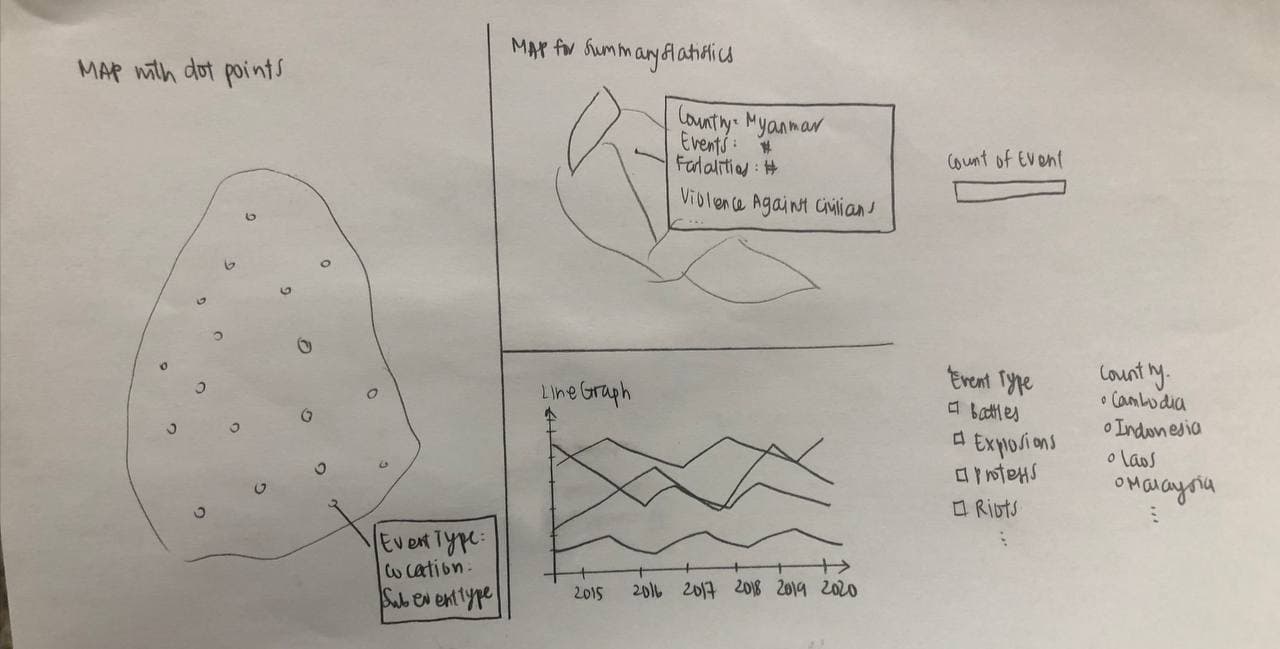 MAP with dot points
EventType:
Location:
Sub eventtype
MAP for Summary Statistics
Country: Myanmar
Events: #
Fatalities: #
Violence Against Civilians
...
Count of Event
Line Graph
2015 2016 2017 2018 2019 2020
Event Type
Battles
Explosions
Protests
Riots
⋮
Country.
Cambodia
Indonesia
Laos
Malaysia
⋮